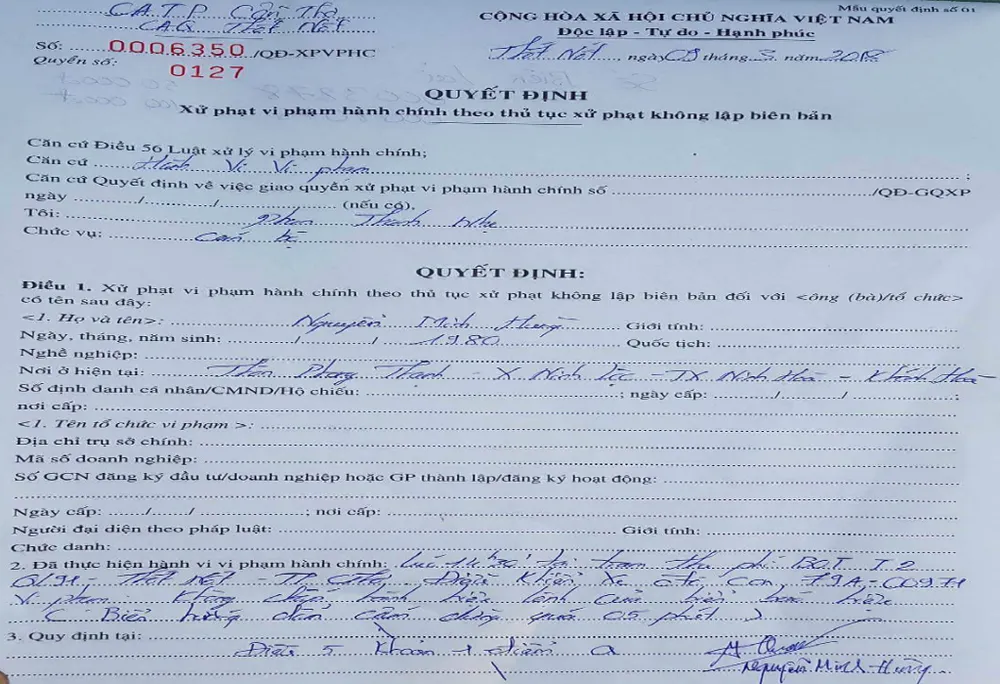 Mẫu quyết định số 01
C.A.T.P Cần Thơ
CỘNG HÒA XÃ HỘI CHỦ NGHĨA VIỆT NAM
C.A.Q Thốt Nốt
Độc lập - Tự do - Hạnh phúc
Số: 0006350 /QĐ-XPVPHC
Thốt Nốt, ngày 09 tháng 3 năm 2018
Quyển số: 0127
QUYẾT ĐỊNH
Xử phạt vi phạm hành chính theo thủ tục xử phạt không lập biên bản
Căn cứ Điều 56 Luật xử lý vi phạm hành chính;
Căn cứ Hành Vi Vi phạm ;
Căn cứ Quyết định về việc giao quyền xử phạt vi phạm hành chính số /QĐ-GQXP
ngày / / (nếu có).
Tôi: Phan Thanh Nhẹ
Chức vụ: Cán bộ
QUYẾT ĐỊNH:
Điều 1. Xử phạt vi phạm hành chính theo thủ tục xử phạt không lập biên bản đối với <ông (bà)/tổ chức>
có tên sau đây:
<1. Họ và tên>: Nguyễn Minh Hùng Giới tính:
Ngày, tháng, năm sinh: / / 1980 Quốc tịch:
Nghề nghiệp:
Nơi ở hiện tại: Thôn Phong Thạnh - X Ninh Lộc - TX Ninh Hoà - Khánh Hoà
Số định danh cá nhân/CMND/Hộ chiếu: ; ngày cấp: / / ;
nơi cấp:
<1. Tên tổ chức vi phạm >:
Địa chỉ trụ sở chính:
Mã số doanh nghiệp:
Số GCN đăng ký đầu tư/doanh nghiệp hoặc GP thành lập/đăng ký hoạt động:
Ngày cấp: / / ; nơi cấp:
Người đại diện theo pháp luật: Giới tính:
Chức danh:
2. Đã thực hiện hành vi vi phạm hành chính: Lúc 14h30' tại trạm thu phí BOT T2
QL91 - Thốt Nốt - TP Cthơ, Điều Khiển Xe ôtô Con 79A-00971
Vi phạm: Không chấp hành hiệu lệnh của biển báo hiệu
( Biển hướng dẫn cấm dừng quá 05 phút )
3. Quy định tại:
Điều 5 Khoản 1 điểm a
Nguyễn Minh Hùng